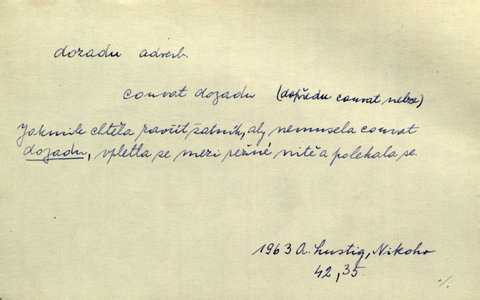 dozadu adverb.
couvat dozadu (dopředu couvat nelze)
Jakmile chtěla zavřít šatník, aby nemusela couvat
dozadu, vpletla se mezi režné nitě a polekala se.
1963 A. Lustig, Nikoho
42, 35
%.